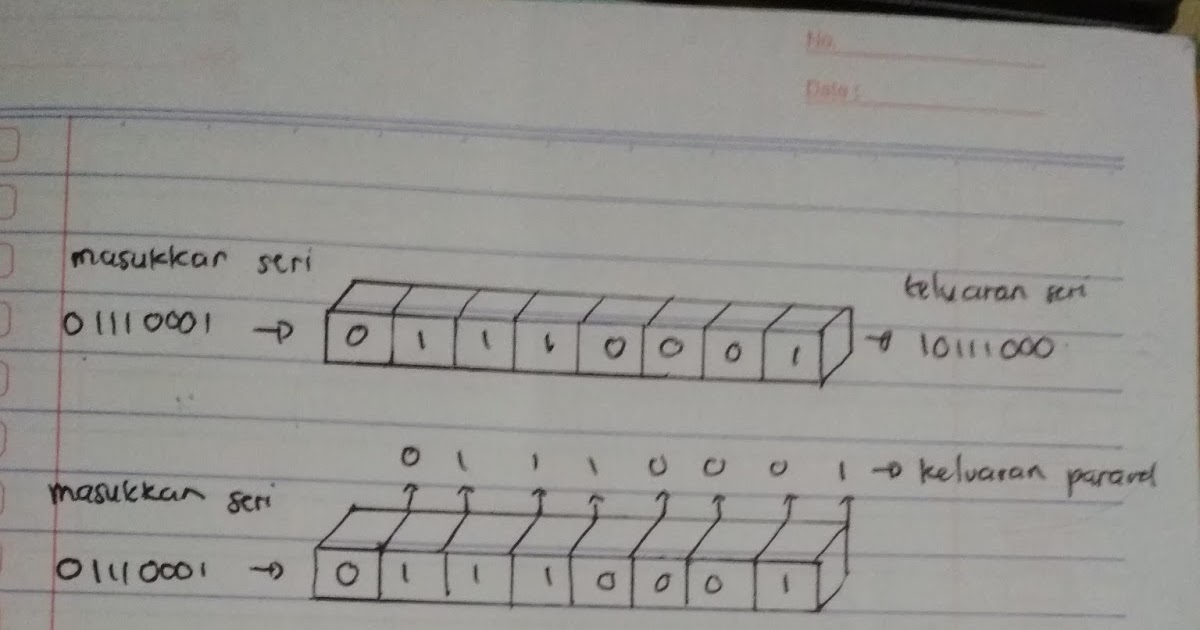 No.
Date :
masukkan seri
keluaran seri
01110001 → 0 1 1 1 0 0 0 1 → 10111000
0 1 1 1 0 0 0 1 → keluaran pararel
masukkan seri
01110001 → 0 1 1 1 0 0 0 1